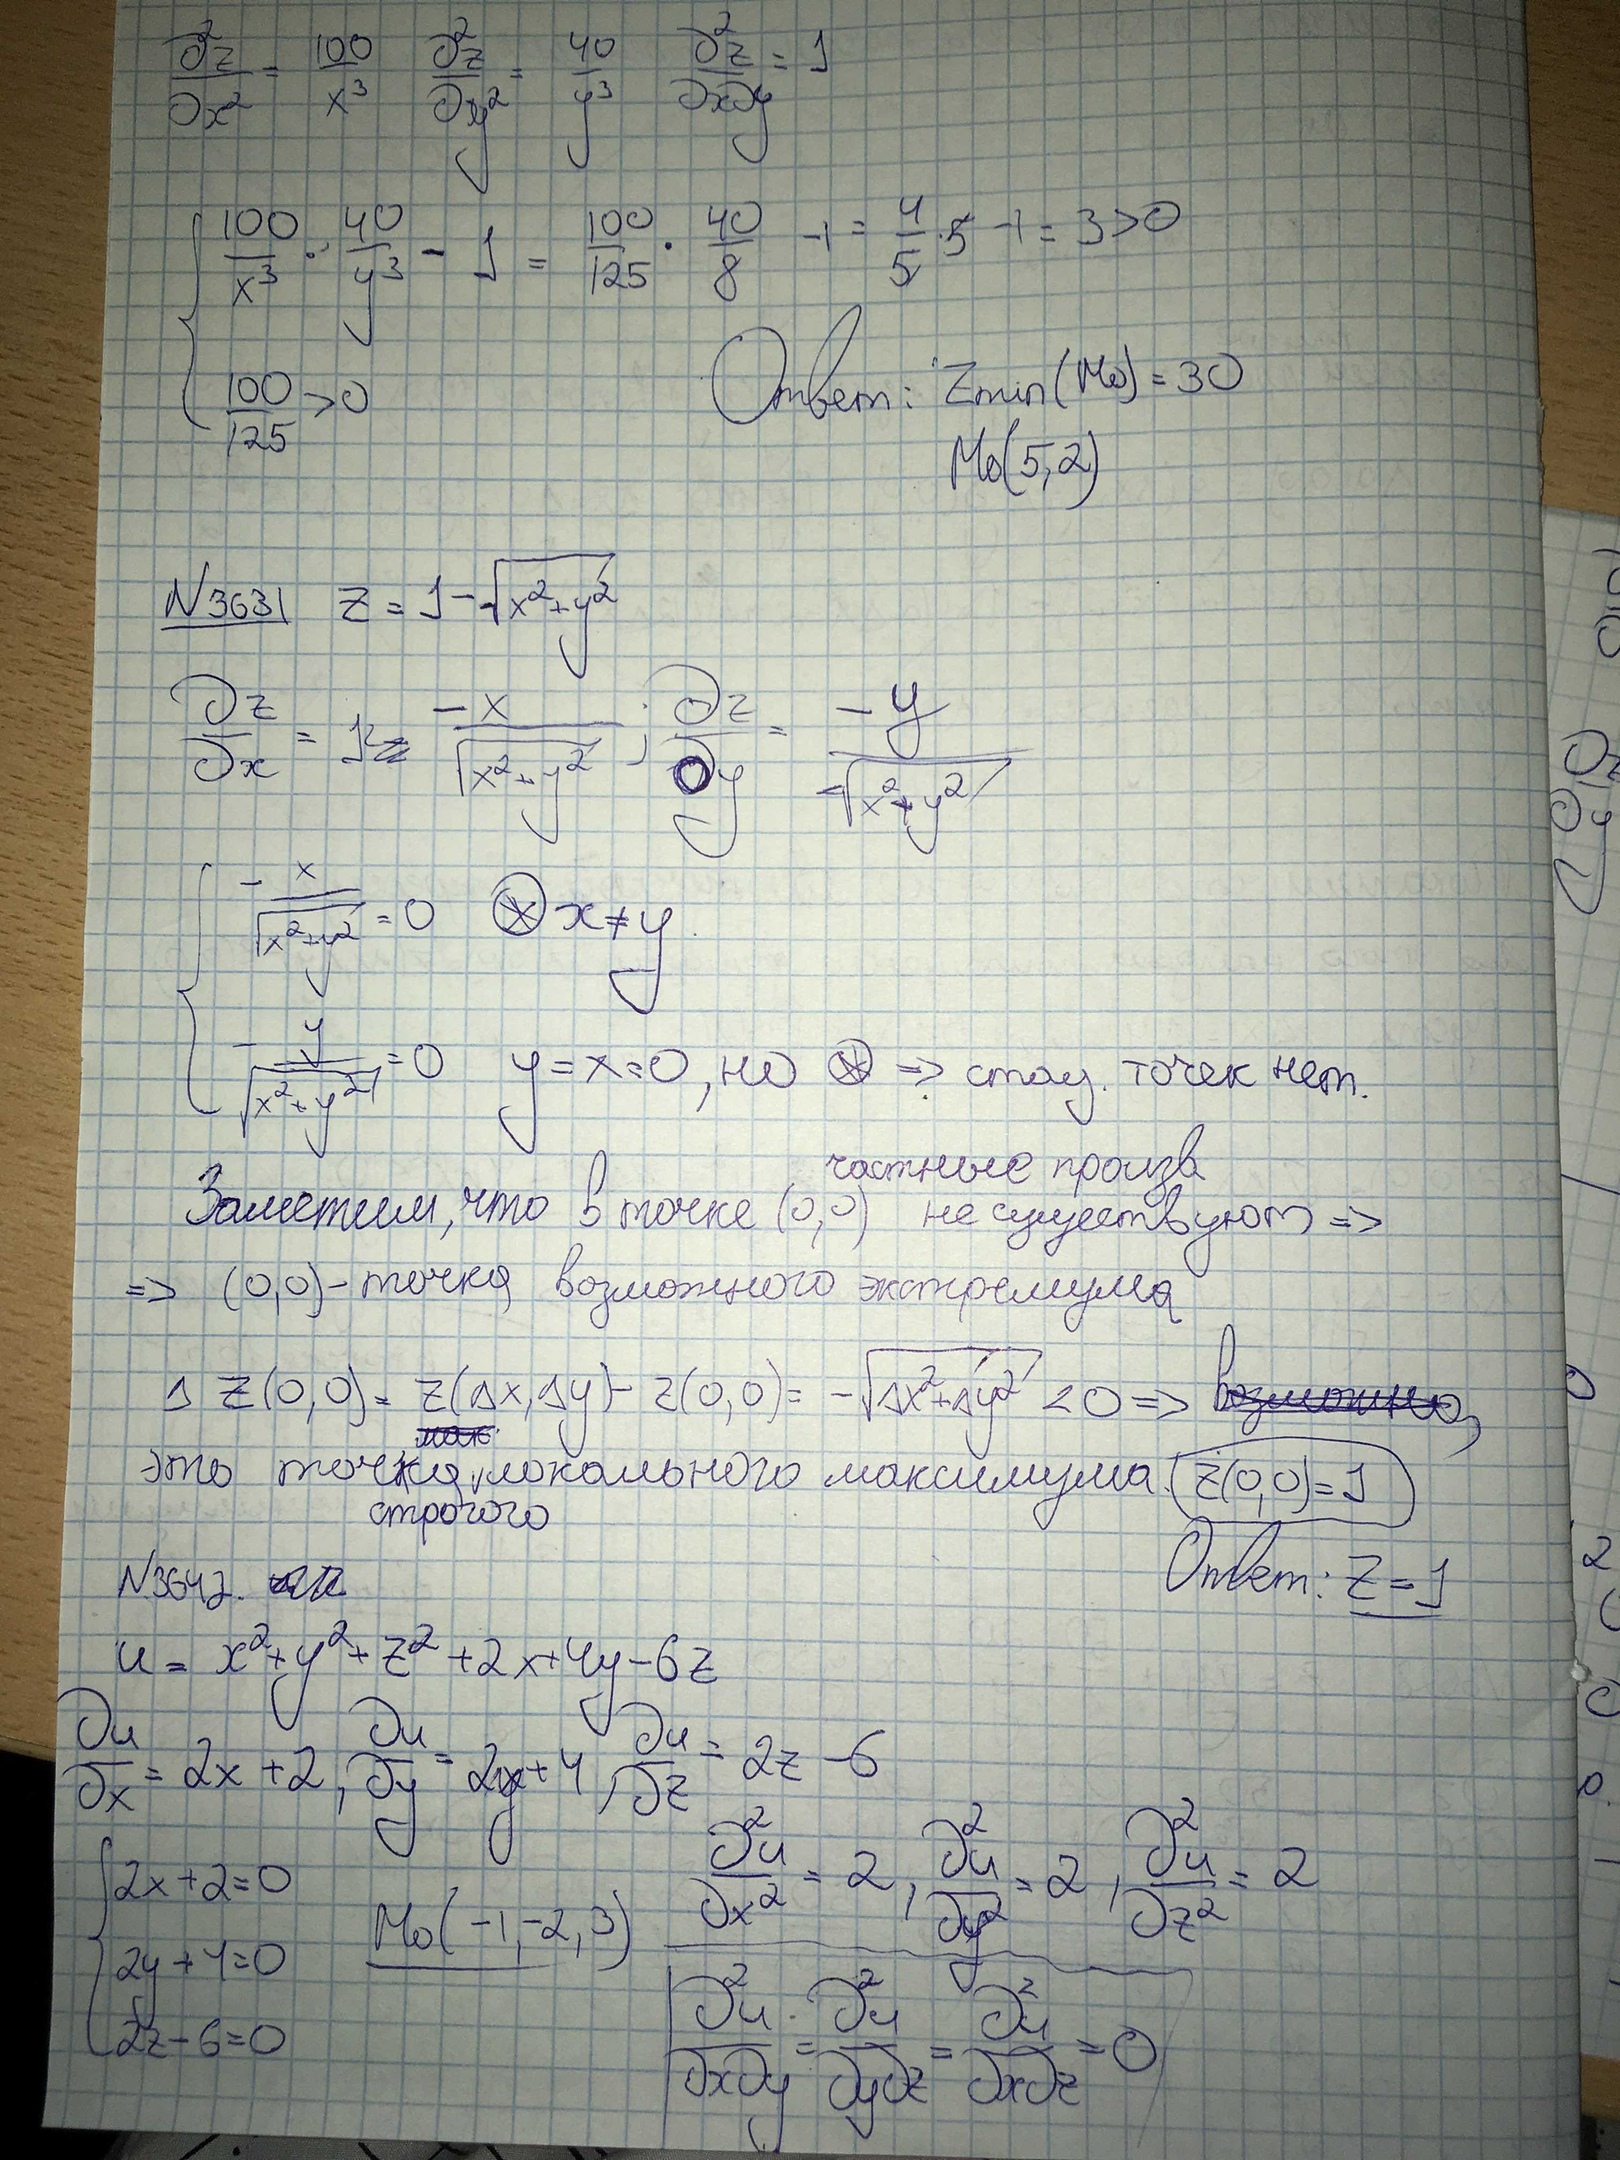 ∂²z/∂x² = 100/x³ ∂²z/∂y² = 40/y³ ∂²z/∂x∂y = 1
100/x³ · 40/y³ - 1 = 100/125 · 40/8 - 1 = 4/5 · 5 - 1 = 3 > 0
100/125 > 0
Ответ: Zmin(M₀) = 30
M₀(5,2)
N3631 z = 1 - √(x²+y²)
∂z/∂x = -x/√(x²+y²) ; ∂z/∂y = -y/√(x²+y²)
-x/√(x²+y²) = 0 ⊛ x ≠ y
-y/√(x²+y²) = 0 y = x = 0, но ⊛ => стац. точек нет.
Заметим, что в точке (0,0) частные произв не существуют =>
=> (0,0) - точка возможного экстремума
Δ z(0,0) = z(Δx, Δy) - z(0,0) = -√(Δx²+Δy²) < 0 =>
это точка строгого локального максимума. z(0,0) = 1
Ответ: z = 1
N3642.
u = x² + y² + z² + 2x + 4y - 6z
∂u/∂x = 2x + 2, ∂u/∂y = 2y + 4, ∂u/∂z = 2z - 6
∂²u/∂x² = 2, ∂²u/∂y² = 2, ∂²u/∂z² = 2
2x + 2 = 0
2y + 4 = 0
2z - 6 = 0
M₀(-1, -2, 3)
∂²u/∂x∂y = ∂²u/∂y∂z = ∂²u/∂x∂z = 0